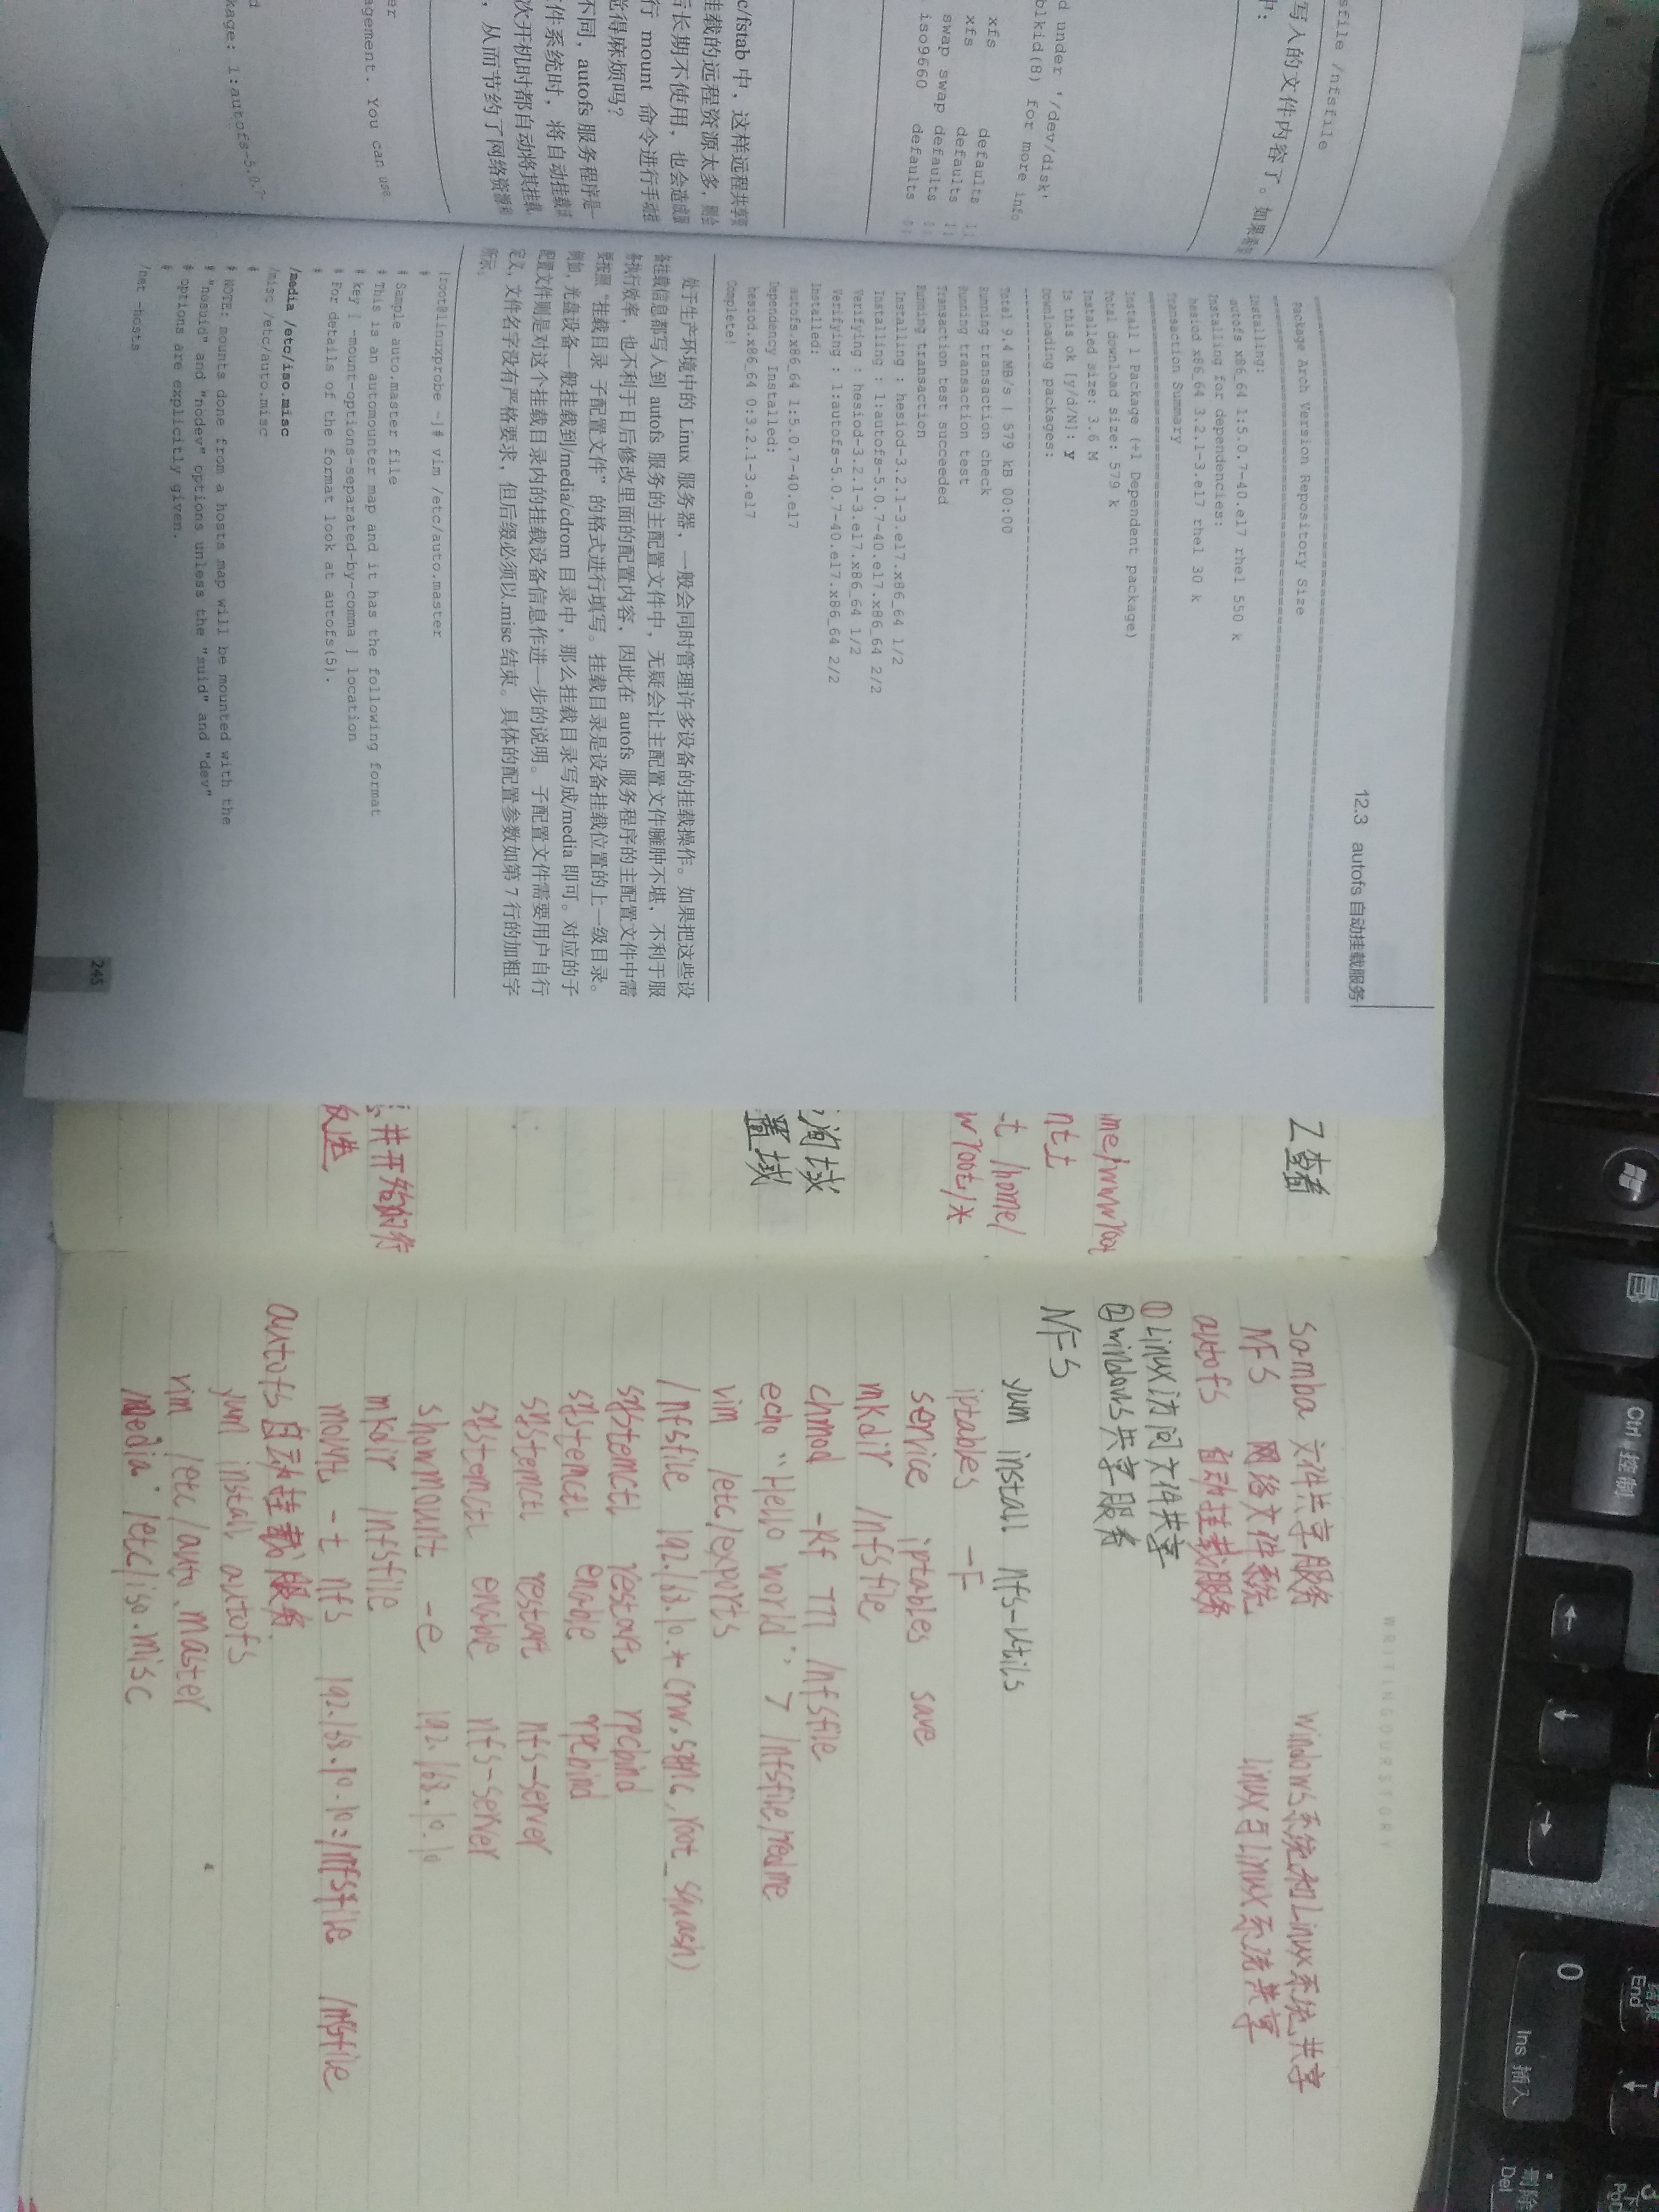 sfile /nfsfile
写入的文件内容了。如果
中:
d under '/dev/disk'
blkid(8) for more info
xfs defaults
xfs defaults
swap swap defaults
iso9660 defaults
c/fstab 中，这样远程共享
挂载的远程资源太多，则会
行长期不使用，也会造成
行 mount 命令进行手动
觉得麻烦吗？
不同，autofs 服务程序是一
件系统时，将自动挂载
次开机时都自动将其挂载
，从而节约了网络资源
er
agement. You can use
d
kage: 1:autofs-5.0.7-
12.3 autofs 自动挂载服务
================================
Package Arch Version Repository Size
================================
Installing:
autofs x86_64 1:5.0.7-40.el7 rhel 550 k
Installing for dependencies:
hesiod x86_64 3.2.1-3.el7 rhel 30 k
Transaction Summary
================================
Install 1 Package (+1 Dependent package)
Total download size: 579 k
Installed size: 3.6 M
Is this ok [y/d/N]: y
Downloading packages:
--------------------------------
Total 9.4 MB/s | 579 kB 00:00
Running transaction check
Running transaction test
Transaction test succeeded
Running transaction
Installing : hesiod-3.2.1-3.el7.x86_64 1/2
Installing : 1:autofs-5.0.7-40.el7.x86_64 2/2
Verifying : hesiod-3.2.1-3.el7.x86_64 1/2
Verifying : 1:autofs-5.0.7-40.el7.x86_64 2/2
Installed:
autofs.x86_64 1:5.0.7-40.el7
Dependency Installed:
hesiod.x86_64 0:3.2.1-3.el7
Complete!
处于生产环境中的 Linux 服务器，一般会同时管理许多设备的挂载操作。如果把这些设
备挂载信息都写入到 autofs 服务的主配置文件中，无疑会让主配置文件臃肿不堪，不利于服
务执行效率，也不利于日后修改里面的配置内容，因此在 autofs 服务程序的主配置文件中需
要按照“挂载目录 子配置文件”的格式进行填写。挂载目录是设备挂载位置的上一级目录。
例如，光盘设备一般挂载到/media/cdrom 目录中，那么挂载目录写成/media 即可。对应的子
配置文件则是对这个挂载目录内的挂载设备信息作进一步的说明。子配置文件需要用户自行
定义，文件名字没有严格要求，但后缀必须以.misc 结束。具体的配置参数如第 7 行的加粗字
所示。
[root@linuxprobe ~]# vim /etc/auto.master
#
# Sample auto.master file
# This is an automounter map and it has the following format
# key [ -mount-options-separated-by-comma ] location
# For details of the format look at autofs(5).
#
/media /etc/iso.misc
/misc /etc/auto.misc
#
# NOTE: mounts done from a hosts map will be mounted with the
# "nosuid" and "nodev" options unless the "suid" and "dev"
# options are explicitly given.
#
/net -hosts
245
查看
me/wwwroot
nt上
-t /home/
wroot/*
询域
置域
#开始的行
反选
WRITINGOURSTORY
samba 文件共享服务 windows系统和Linux系统共享
NFS 网络文件系统 linux与Linux系统共享
autofs 自动挂载服务
①Linux访问文件共享
②windows共享服务
NFS
yum install nfs-utils
iptables -F
service iptables save
mkdir /nfsfile
chmod -Rf 777 /nfsfile
echo "Hello world" > /nfsfile/readme
vim /etc/exports
/nfsfile 192.168.10.*(rw,sync,root_squash)
systemctl restart rpcbind
systemctl enable rpcbind
systemctl restart nfs-server
systemctl enable nfs-server
showmount -e 192.168.10.10
mkdir /nfsfile
mount -t nfs 192.168.10.10:/nfsfile /nfsfile
autofs 自动挂载服务
yum install autofs
vim /etc/auto.master
/media /etc/iso.misc
Ctrl 控制
←
↓
→
0
Ins 插入
End
Del
删除